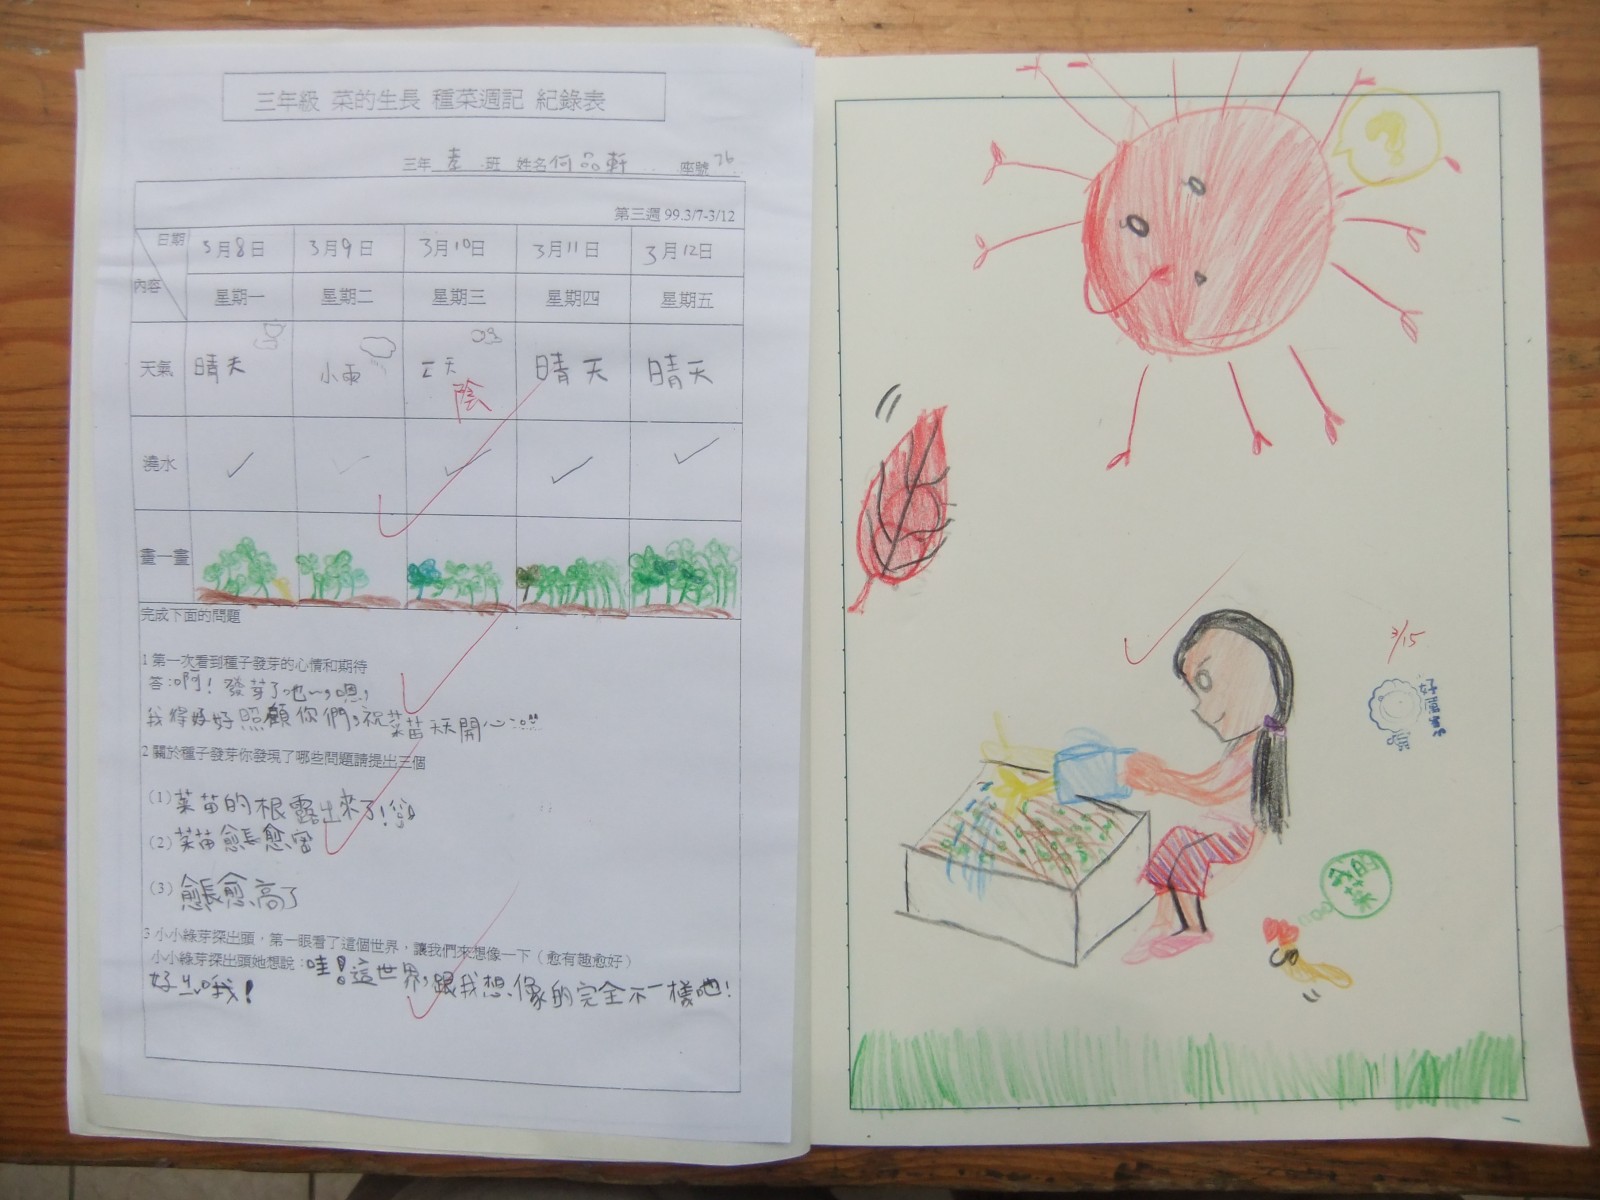 三年級 菜的生長 種菜週記 紀錄表
三年 孝 班 姓名 何品軒 座號 26
第三週 99.3/7-3/12
日期 3月8日 3月9日 3月10日 3月11日 3月12日
內容 星期一 星期二 星期三 星期四 星期五
天氣 晴天 小雨 天 晴天 晴天
陰
澆水
畫一畫
完成下面的問題
1 第一次看到種子發芽的心情和期待
答:啊!發芽了吔~,嗯,
我得好好照顧你們,祝菜苗天天開心
2 關於種子發芽你發現了哪些問題請提出三個
(1) 菜苗的根露出來了!
(2) 菜苗愈長愈密
(3) 愈長愈高了
3 小小綠芽探出頭,第一眼看了這個世界,讓我們來想像一下(愈有趣愈好)
小小綠芽探出頭她想說:哇!這世界,跟我想像的完全不一樣吔!
好 哦!
?
3/15
我的菜